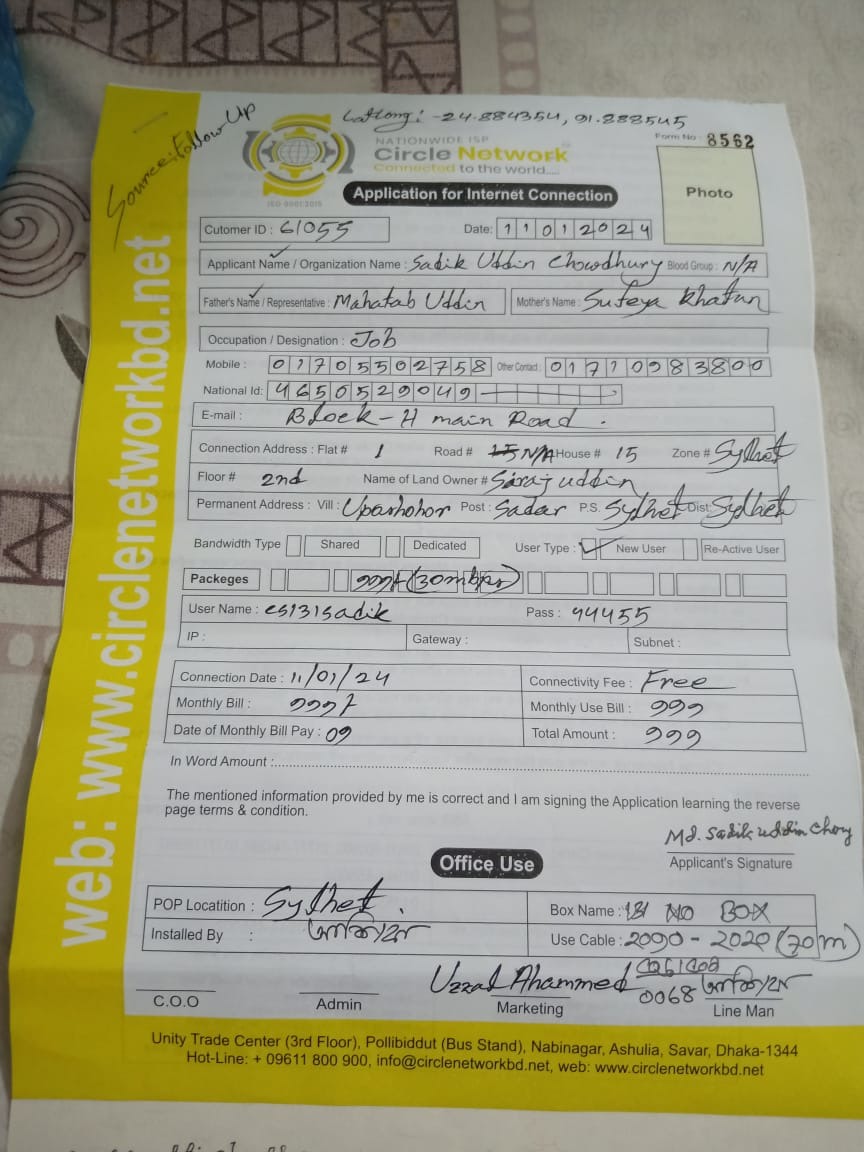 Source: Follow UP
Latlong: -24.884354, 91.888545
NATIONWIDE ISP
Circle Network
Connected to the world.....
ISO 9001:2015
Form No 8562
Application for Internet Connection
Photo
Cutomer ID : 61055 Date: 11012024
Applicant Name / Organization Name : Sadik Uddin Chowdhury Blood Group : N/A
Father's Name / Representative : Mahatab Uddin Mother's Name : Sufeya Khatun
Occupation / Designation : Job
Mobile : 01705502758 Other Contact : 01710983800
National Id: 4650529049
E-mail : Block-H main Road .
Connection Address : Flat # 1 Road # N/A House # 15 Zone # Sylhet
Floor # 2nd Name of Land Owner # Siraj uddin
Permanent Address : Vill : Uparhohor Post : Sadar P.S. Sylhet Dist: Sylhet
Bandwidth Type Shared Dedicated User Type : ✓ New User Re-Active User
Packeges 999৳ (30mbps)
User Name : cs131sadik Pass : 44455
IP : Gateway : Subnet :
Connection Date : 11/01/24 Connectivity Fee : Free
Monthly Bill : 999৳ Monthly Use Bill : 999
Date of Monthly Bill Pay : 09 Total Amount : 999
In Word Amount :
The mentioned information provided by me is correct and I am signing the Application learning the reverse
page terms & condition.
Md. Sadik uddin Chory
Applicant's Signature
Office Use
POP Locatition : Sylhet . Box Name : 131 NO BOX
Installed By : Use Cable : 2090 - 2020 (70m)
Uzzal Ahammed
0068
C.O.O Admin Marketing Line Man
Unity Trade Center (3rd Floor), Pollibiddut (Bus Stand), Nabinagar, Ashulia, Savar, Dhaka-1344
Hot-Line: + 09611 800 900, info@circlenetworkbd.net, web: www.circlenetworkbd.net
web: www.circlenetworkbd.net